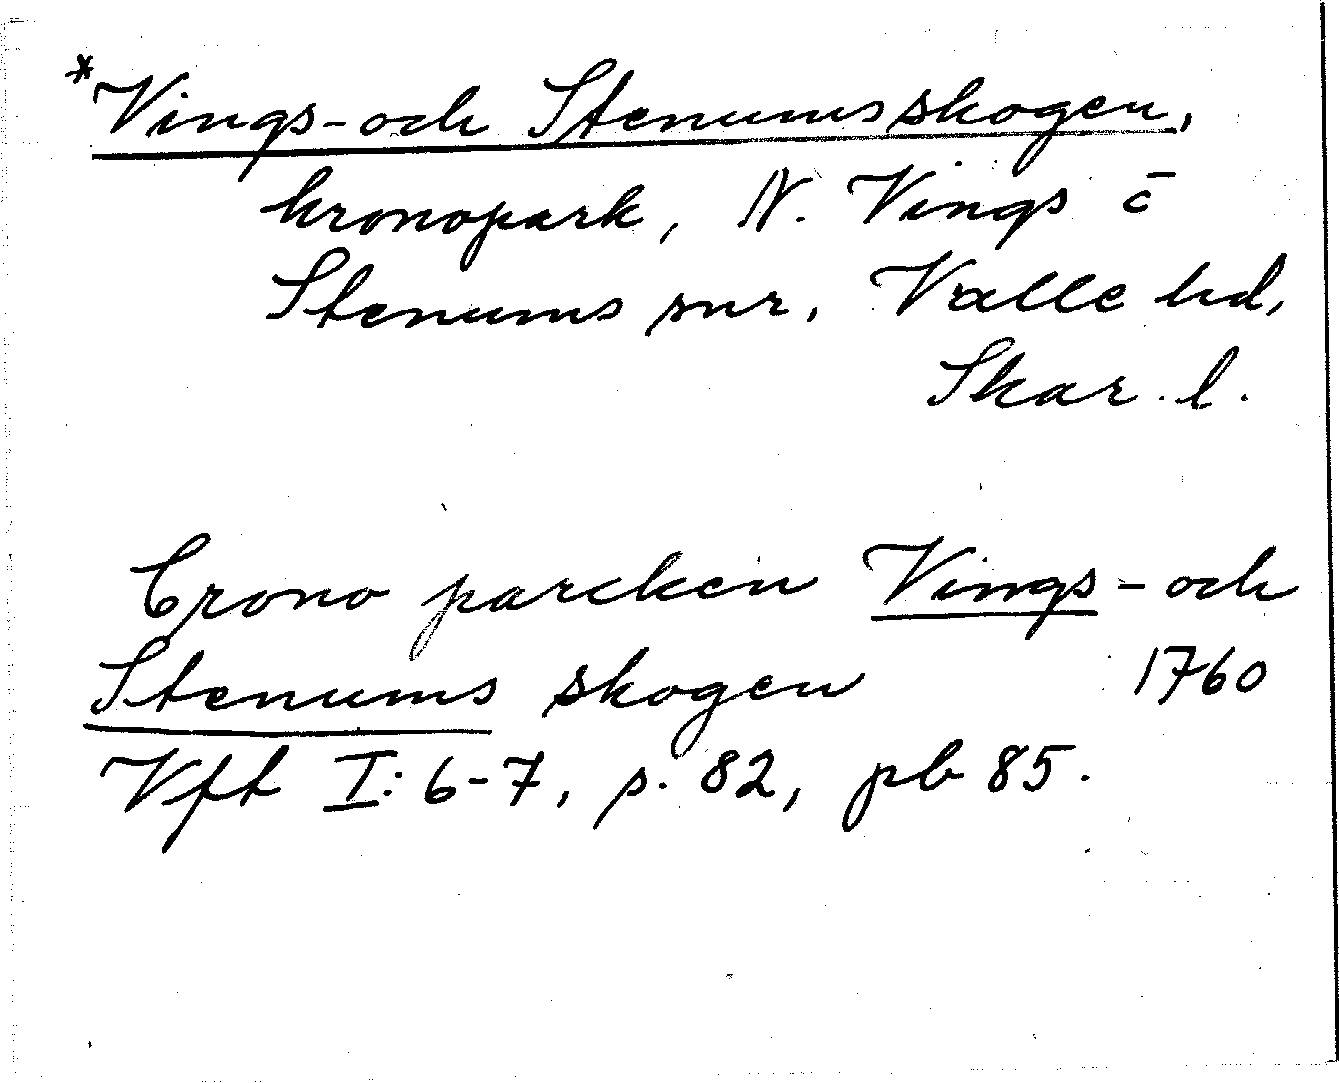 *Vings- och Stenumsskogen,
kronopark, N. Vings c̄
Stenums snr, Valle hd,
Skar. l.
Crono parcken Vings- och
Stenums skogen 1760
Vft I: 6-7, s. 82, pb 85.